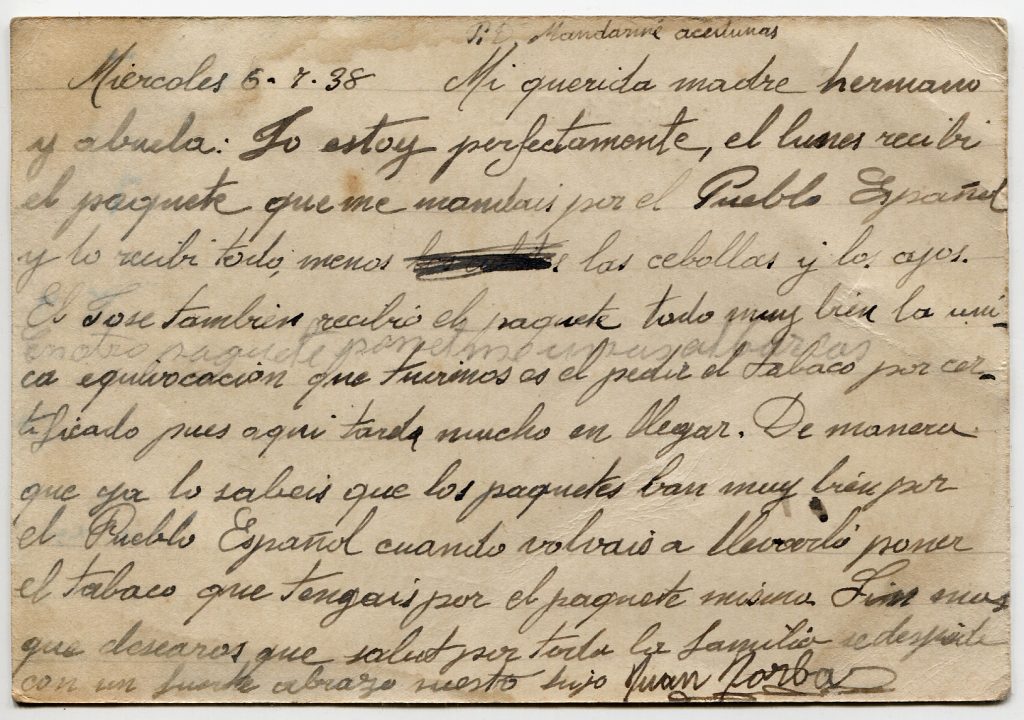 P.E. Mandarme aceitunas
Miercoles 6-7-38 Mi querida madre hermano
y abuela: Jo estoy perfectamente, el lunes recibi
el paquete que me mandais por el Pueblo Español
y lo recibi todo, menos las cebollas y los ajos.
El Jose tambien recibio el paquete todo muy bien la uni-
en otro paquete ponerme unas
ca equivocacion que tuvimos es el pedir el tabaco por cer-
tificado pues aqui tarda mucho en llegar. De manera
que ya lo sabeis que los paquetes ban muy bien por
el Pueblo Español cuando volvais a llevarlo poner
el tabaco que tengais por el paquete mismo. Sin mas
que desearos que salut por toda la familia se despide
con un fuerte abrazo vuesto hijo Juan Dorba